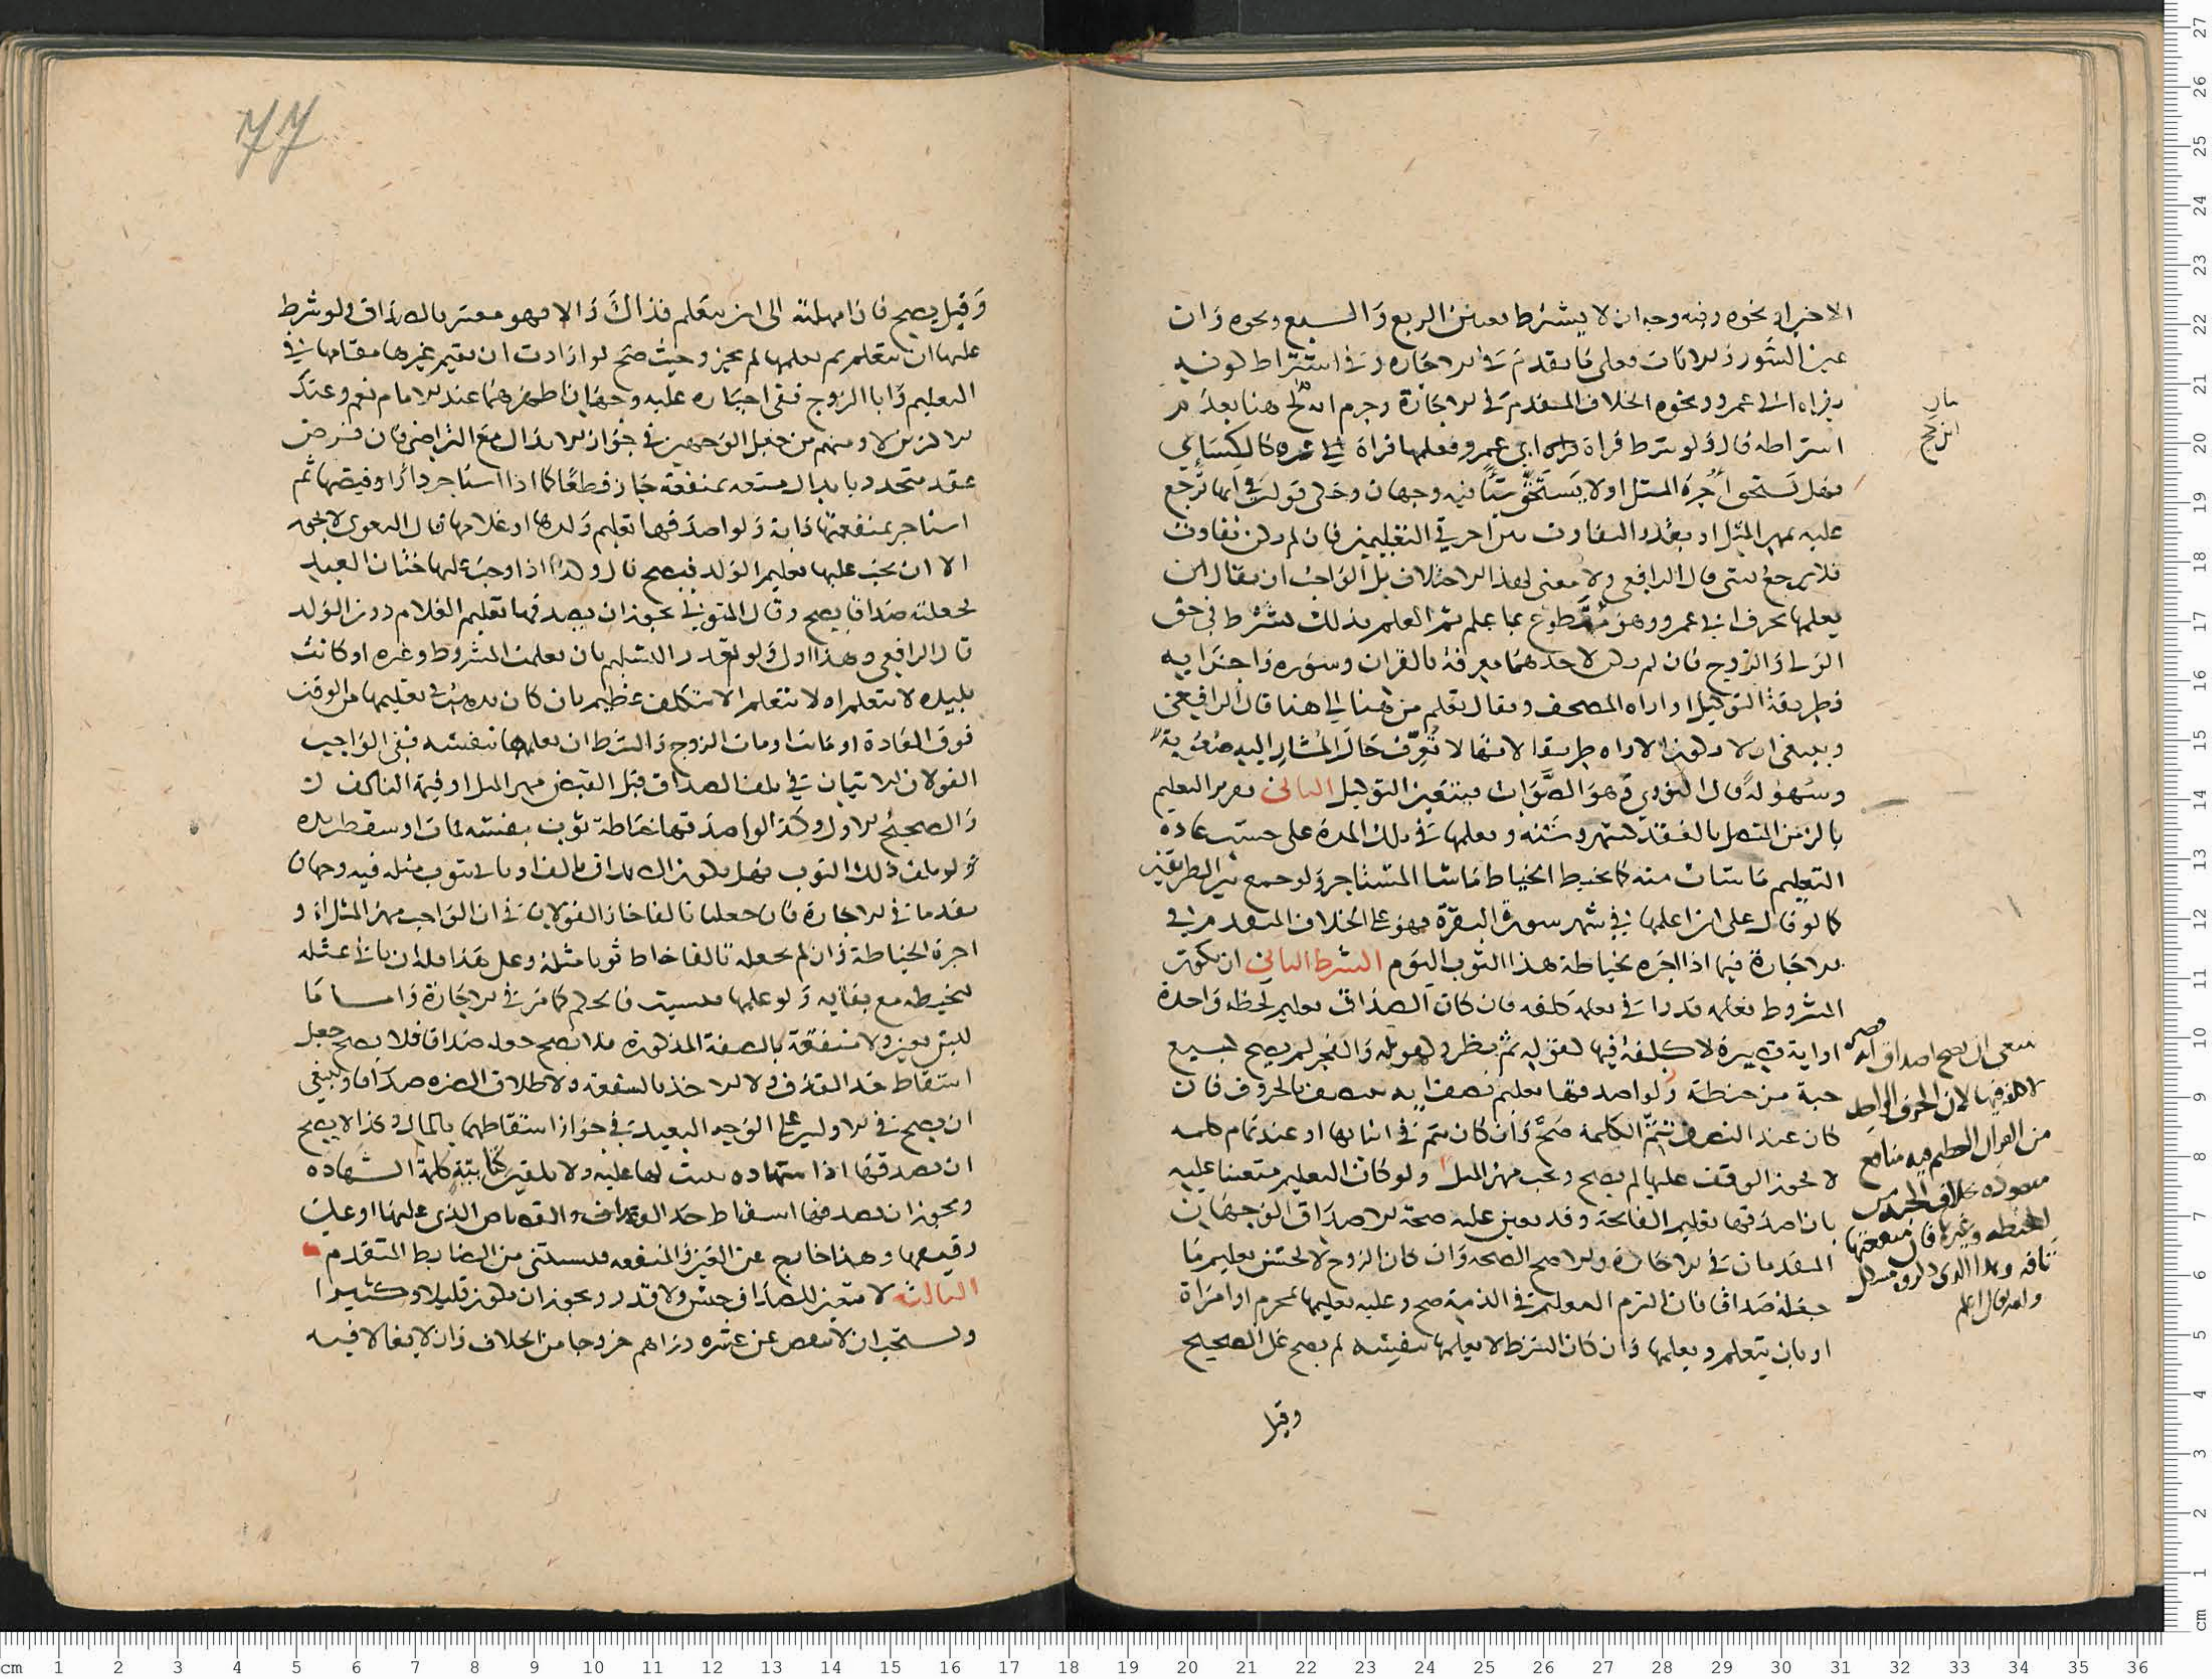 الاخير او نحوه وفيه وجه ان لا يشترط تعيين الربع والسبع ونحوه وان
عين السور والايات فعلى ما تقدم في الاجارة وفي اشتراط كونه
بقراة ابي عمرو ونحوه الخلاف المتقدم في الاجارة وجزم ابن كج هنا بعدم
اشتراطه قال ولو شرط قراة ابي عمرو فعلمها قراة غيره كالكسائي
فهل تستحق اجرة المثل او لا يستحق شيا فيه وجهان وحكى قولين في انها ترجع
عليه بمهر المثل او بقدر التفاوت بين اجرتي التعليمين فان لم يكن تفاوت
فلا ترجع بشي قال الرافعي ولا معنى لهذا الاختلاف بل الواجب ان يقال ان
يعلمها بحرف ابي عمرو وهو متطوع بما علم ثم العلم بذلك شرط في حق
الولي والزوج فان لم يكن لاحدهما معرفة بالقران وسوره واجزايه
فطريقة التوكيل او اراه المصحف ويقال تعلم من هنا الى هنا قال الرافعي
وينبغي ان لا يكون الاراه طريقا لانها لا تعرف حال المشار اليه صعوبة
وسهولة قال النووي وهو الصواب فيتعين التوكيل الثاني تقدير التعليم
بالزمن المتصل بالعقد كشهر وسنة ويعلمها في تلك المدة على حسب عادة
التعليم ما شات منه كما يخيط الخياط ما شا المستاجر ولو جمع بين الطريقين
كما لو قال على ان اعلمها في شهر سورة البقرة فهو على الخلاف المتقدم في
الاجارة فيما اذا اجره بخياطة هذا الثوب اليوم الشرط الثاني ان يكون
المشروط تعلمه قدرا في تعلمه كلفة فان كان الصداق تعليم لحظة واحدة
او اية قصيرة لا كلفة فيها كقوله ثم نظر وكقوله والفجر لم يصح كبيع
حبة من حنطة ولو اصدقها تعليم نصف اية بنصف الحروف فان
كان عند النصف تتم الكلمة صح وان كان يتم في اثنايها او عند تمام كلمة
لا يجوز الوقف عليها لم يصح ويجب مهر المثل ولو كان التعليم متعينا عليه
بان اصدقها تعليم الفاتحة وقد تعين عليه صحة الاصداق الوجهان
المتقدمان في الاجارة والاصح الصحة وان كان الزوج لا يحسن تعليم ما
جعله صداقا فان التزم التعليم في الذمة صح وعليه تعليمها بمحرم او امراة
او بان يتعلم ويعلمها وان كان الشرط لا يعلمها بنفسه لم يصح على الصحيح
وقيل
ابن كج
ينبغي ان يصح اصداق اية قصيرة
لا كلفة فيها لان الحرف الواحد
من القران العظيم فيه منافع
مقصودة بخلاف الحبة من
الحنطة وغيرها فان منفعتها
تافهة وهذا الذي
والله تعالى اعلم
77
وقيل يصح فان امهلته الى ان يتعلم فذاك والا فهو معسر بالصداق ولو شرط
عليها ان يتعلم ثم يعلمها لم يجز وحيث صح لو ارادت ان تقيم غيرها مقامها في
التعليم وابا الزوج ففي اجباره عليه وجهان اظهرهما عند الامام نعم وعند
الاكثرين لا ومنهم من جعل الوجهين في جواز الابدال مع التراضي فان فرض
عقد متجدد بابدال منفعة بمنفعة جاز قطعا كما اذا استاجر دارا وقبضها ثم
استاجر بمنفعتها دابة ولو اصدقها تعليم ولدها او غلامها قال البغوي لا يجوز
الا ان يجب عليها تعليم الولد فيصح قال وكذا اذا وجب عليها ختان العبد
لجعلته صداقا يصح وقال المتولي يجوز ان يصدقها تعليم الغلام دون الولد
قال الرافعي وهذا اولى ولو تعذر التعليم بان تعلمت المشروط وغيره او كانت
بليدة لا تتعلم او لا تتعلم الا بتكلف عظيم بان كان يذهب في تعليمها من الوقت
فوق العادة او ماتت او مات الزوج والشرط ان يعلمها بنفسه ففي الواجب
القولان الاتيان في تلف الصداق قبل القبض مهر المثل او قيمة التالف
والصحيح الاول وكذا لو اصدقها خياطة ثوب بنفسه فمات او سقطت يده
ولو تلف ذلك الثوب فهل يكون الصداق تالفا او ياتي بثوب مثله فيه وجهان
تقدما في الاجارة فان جعلناه تالفا جا القولان في ان الواجب مهر المثل او
اجرة الخياطة وان لم نجعله تالفا خاط ثوبا مثله وعلى هذا فلها ان تاتي بمثله
ليخيطه مع بقايه ولو علمها فنسيت فالحكم كما مر في الاجارة واما ما
ليس بعين ولا منفعة بالصفة المذكورة فلا يصح جعله صداقا فلا يصح جعل
اسقاط حد القذف ولا الاخذ بالشفعة ولا طلاق الضرة صداقا وينبغي
ان يصح في الاوليين على الوجه البعيد في جواز اسقاطهما بالمال وكذا لا يصح
ان يصدقها اذا شهادة ثبتت لها عليه ولا تلقين كتابية كلمة الشهادة
ويجوز ان يصدقها اسقاط حد القذف والقصاص الذي عليها او على
رقيقها وهذا خارج عن العين والمنفعة فليستثنى من الضابط المتقدم
الثالثة لا يتعين للصداق جنس ولا قدر ويجوز ان يكون قليلا وكثيرا
ويستحب ان لا ينقص عن عشرة دراهم خروجا من الخلاف وان لا يغالا فيه